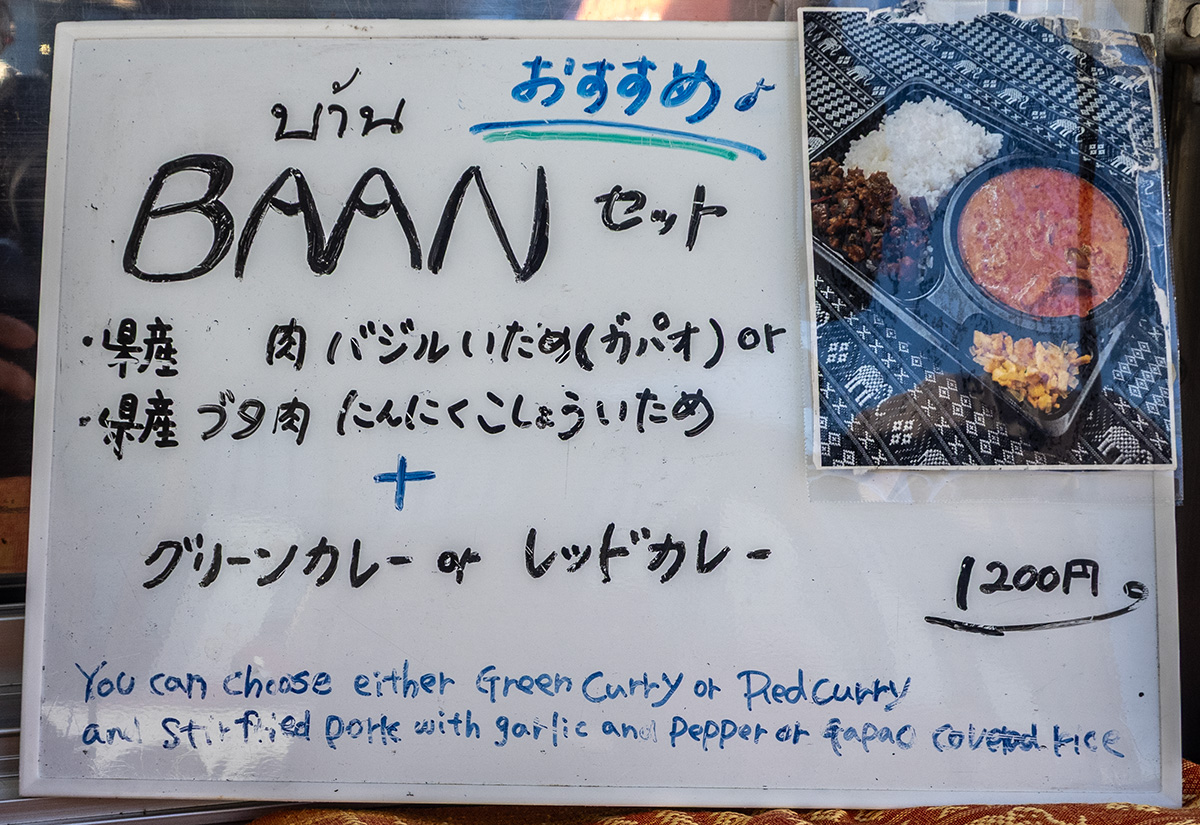 おすすめ♪
บ้าน
BAAN セット
・県産 肉 バジルいため(ガパオ) or
・県産 ブタ肉 にんにくこしょういため
+
グリーンカレー or レッドカレー
1200円
You can choose either Green Curry or Red curry
and stir fried pork with garlic and pepper or gapao covered rice